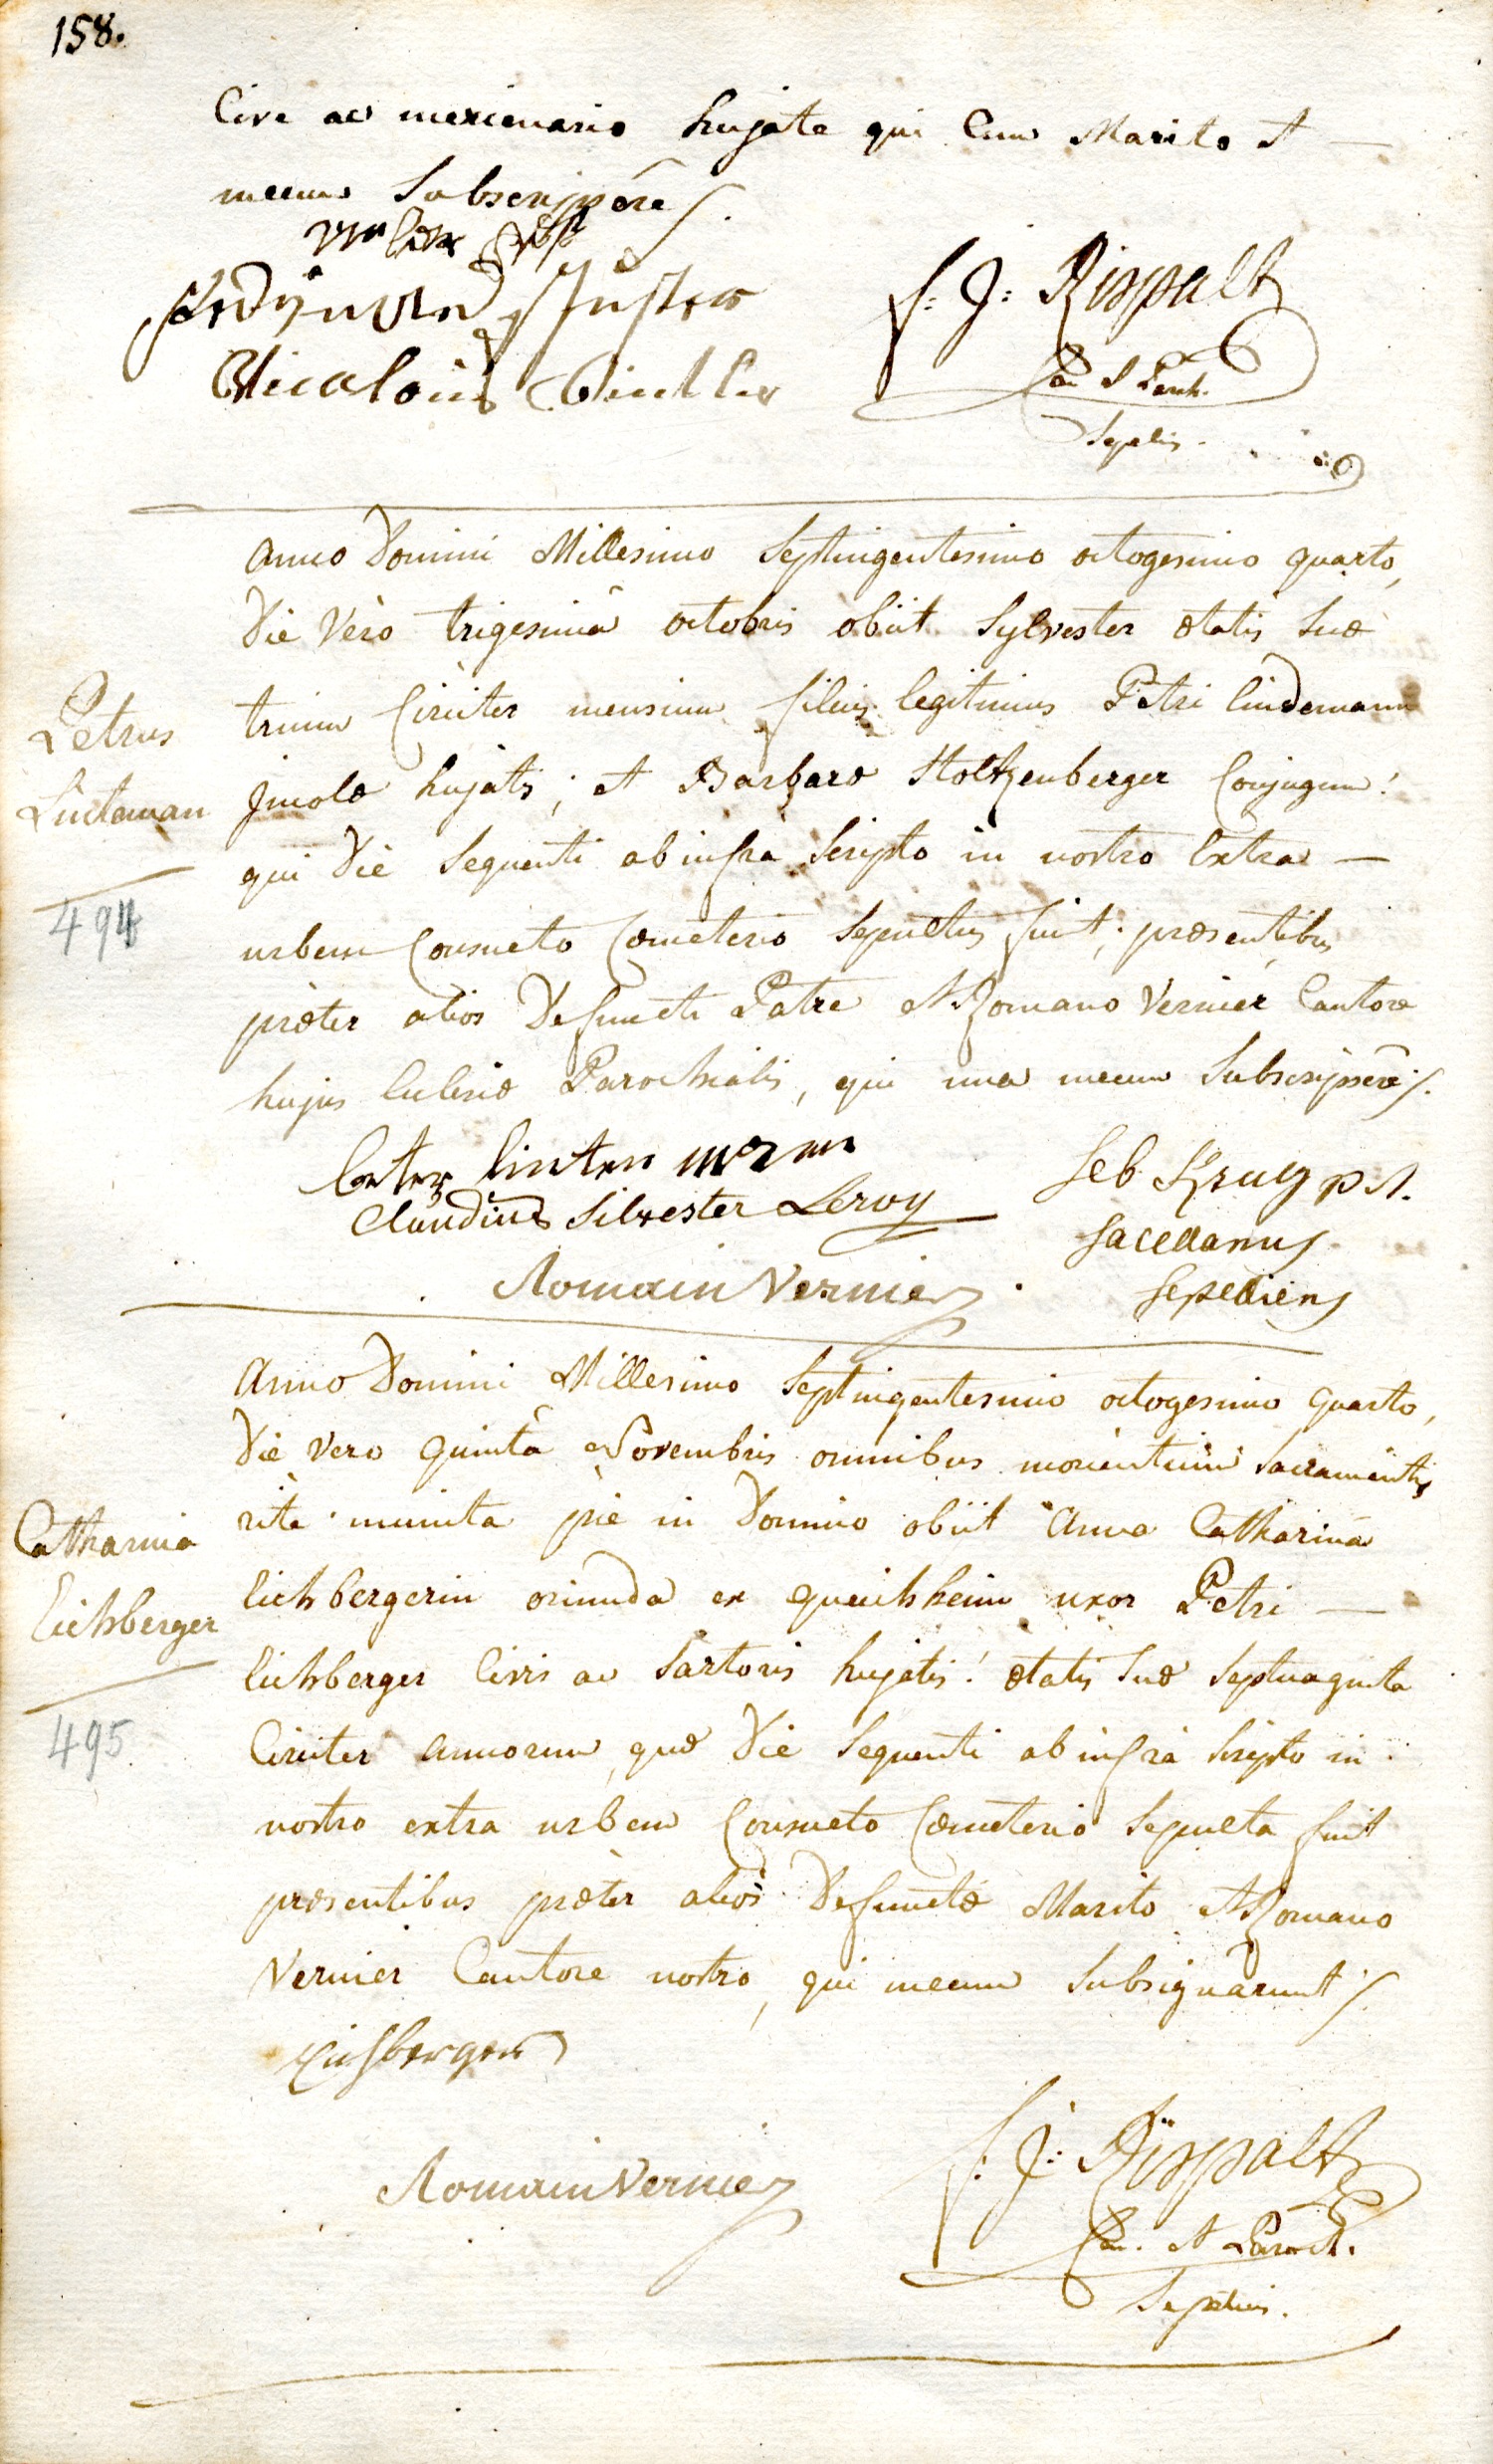 158.
Cive ac mercenario hujate qui Cum Marito et —
mecum Subscripsere /.
F: J: Rispalt
Can et Paroch.
Sepeliens
Anno Domini Millesimo Septingentesimo octogesimo quarto,
Die Verò trigesimâ octobris obiit Sylvester ætatis Suæ
trium Circiter mensium filius legitimus Petri Lindemann
Incolæ hujatis, et Barbaræ Stoltzenberger Conjugum!
qui Die Sequenti ab infra Scripto in nostro Extra —
urbem Consueto Cœmeterio Sepultus fuit; præsentibus
præter alios Defuncti Patre et Romano Vernier Cantore
hujus Ecclesiæ Parochialis, qui una mecum Subscripsere /.
Petrus
Lintaman
494
Peter Lintenmann
Claudius Silvester Leroy
Romain Vernier
Seb Krug p.t.
Sacellanus
Sepeliens
Anno Domini Millesimo Septingentesimo octogesimo Quarto,
Die Vero Quintâ Novembris omnibus morientium Sacramentis
ritè munita piè in Domino obiit Anna Catharina
Eichbergerin oriunda ex Queichheim uxor Petri —
Eichberger Civis ac Sartoris hujatis! ætatis Suæ Septuaginta
Circiter annorum, quæ Die Sequenti ab infrà Scripto in
nostro extra urbem Consueto Cœmeterio Sepulta fuit
præsentibus præter alios Defunctæ Marito et Romano
Vernier Cantore nostro, qui mecum Subsignarunt /.
Catharina
Eichberger
495
Eichberger
Romain Vernier
F: J: Rispalt
Can. et Paroch.
Sepeliens.